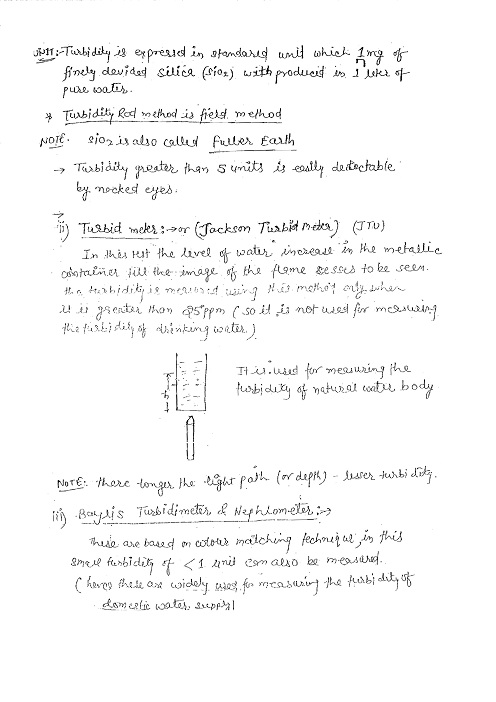 UNIT:- Turbidity is expressed in standared unit which 1 mg of
finely devided silica (SiO2) with produced in 1 liter of
pure water.
* Turbidity Rod method is field method
NOTE. SiO2 is also called Fuller Earth
→ Turbidity greater than 5 units is easily dectectable
by nacked eyes.
→
ii) Turbid meter:→ or (Jackson Turbid Meter) (JTU)
In this test the level of water increase in the metallic
container till the image of the flame cesses to be seen.
the turbidity is measured using this method only when
it is greater than 25 ppm (so it is not used for measuring
the turbidity of drinking water.)
h
It is used for measuring the
turbidity of natural water body
NOTE:- there longer the light path (or depth) - lesser turbidity.
iii) Baylis Turbidimeter & Nephlometer:→
these are based on colour matching technique, in this
small turbidity of < 1 unit can also be measured.
(hence these are widely used for measuring the turbidity of
domestic water supply